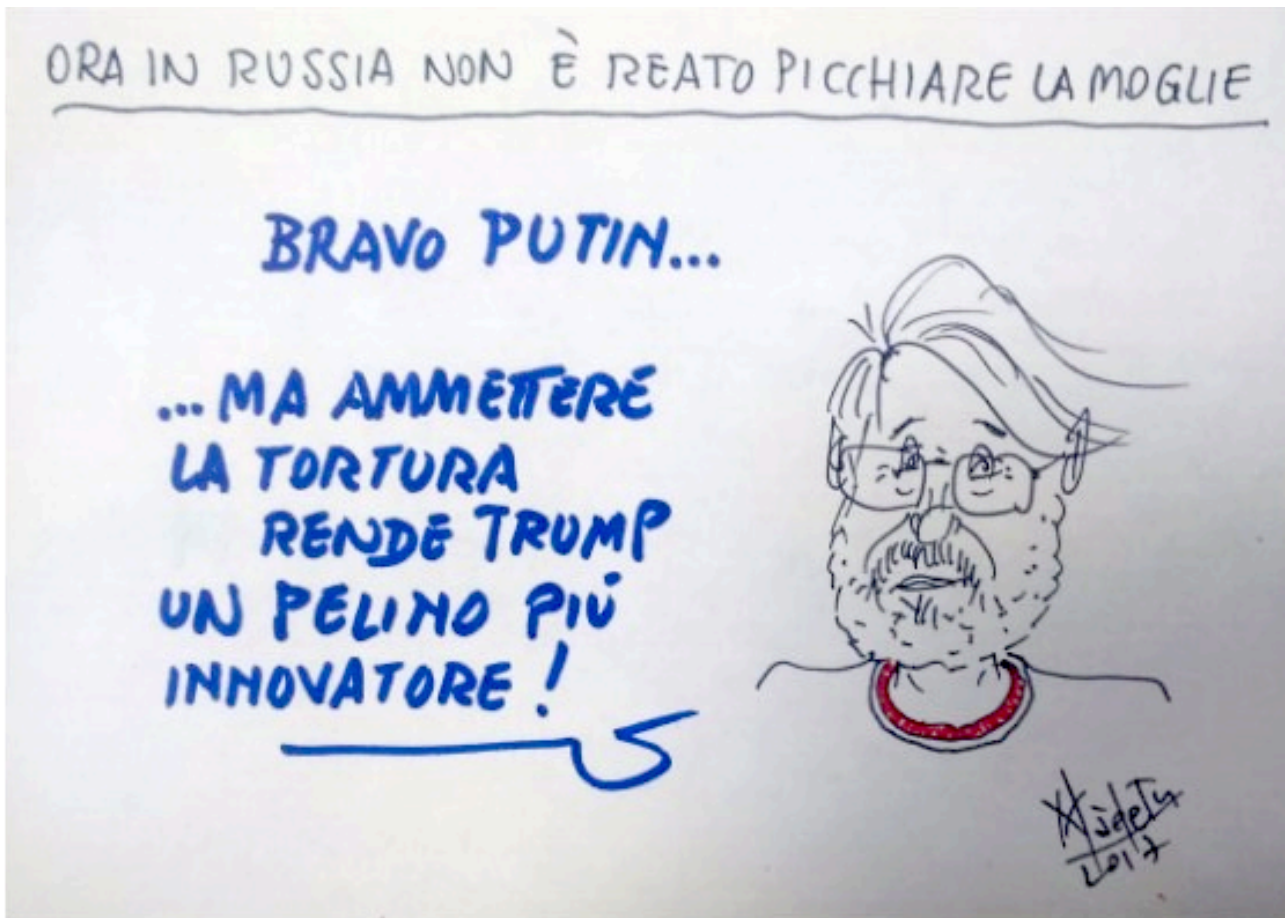 ORA IN RUSSIA NON È REATO PICCHIARE LA MOGLIE
BRAVO PUTIN...
...MA AMMETTERE
LA TORTURA
RENDE TRUMP
UN PELINO PIÚ
INNOVATORE!
2017